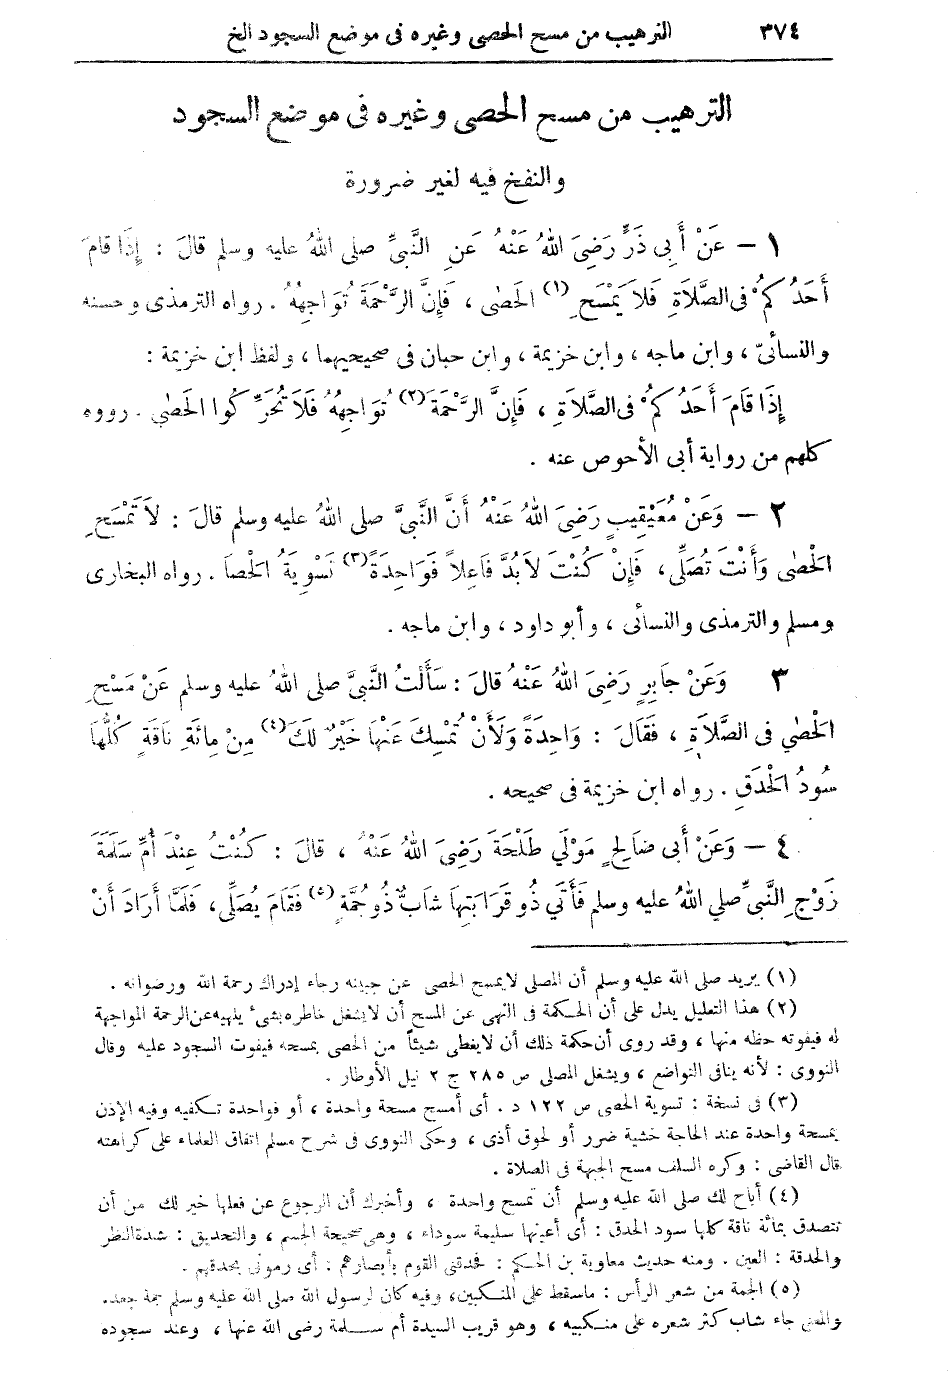 ٣٧٤ الترهيب من مسح الحصى وغيره فى موضع السجود الخ
الترهيب من مسح الحصى وغيره فى موضع السجود
والنفخ فيه لغير ضرورة
١ – عَنْ أَبِى ذَرٍّ رَضِىَ اللهُ عَنْهُ عَنِ النَّبِىِّ صلى اللهُ عليه وسلم قالَ : إِذَا قامَ
أَحَدُكُمْ فى الصَّلاَةِ فَلاَ يَمْسَحِ (١) الحَصٰى ، فَإِنَّ الرَّحْمَةَ تُوَاجِهُهُ . رواه الترمذى وحسنه
والنسائىّ ، وابن ماجه ، وابن خزيمة ، وابن حبان فى صحيحيهما ، ولفظ ابن خزيمة :
إِذَا قَامَ أَحَدُكُمْ فى الصَّلاَةِ ، فَإِنَّ الرَّحْمَةَ (٢) تُوَاجِهُهُ فَلاَ تُحَرِّكُوا الحَصٰى . رووه
كلهم من رواية أبى الأحوص عنه .
٢ – وَعَنْ مُعَيْقِيبٍ رَضِىَ اللهُ عَنْهُ أَنَّ النَّبِىَّ صلى اللهُ عليه وسلم قالَ : لاَ تَمْسَحِ
الحَصٰى وَأَنْتَ تُصَلِّى ، فَإِنْ كُنْتَ لاَ بُدَّ فَاعِلاً فَوَاحِدَةً (٣) تَسْوِيَةُ الحْصَا . رواه البخارى
ومسلم والترمذى والنسائى ، وأبو داود ، وابن ماجه .
٣ وَعَنْ جَابِرٍ رَضِىَ اللهُ عَنْهُ قالَ : سَأَلْتُ النَّبِىَّ صلى اللهُ عليه وسلم عَنْ مَسْحِ
الْحَصٰى فى الصَّلاَةِ ، فَقَالَ : وَاحِدَةً وَلَأَنْ تُمْسِكَ عَنْهَا خَيْرٌ لَكَ (٤) مِنْ مِائَةِ نَاقَةٍ كُلُّهَا
سُودُ الحْدَقِ . رواه ابن خزيمة فى صحيحه .
٤ – وَعَنْ أَبى صَالِحٍ مَوْلَي طَلْحَةَ رَضِىَ اللهُ عَنْهُ ، قالَ : كُنْتُ عِنْدَ أُمِّ سَلَمَةَ
زَوْجِ النَّبِىِّ صلي اللهُ عليه وسلم فَأَتَي ذُو قَرَابَتِهَا شَابٌّ ذُو جُمَّةٍ (٥) فَقَامَ يُصَلِّى ، فَلَمَّا أَرَادَ أَنْ
(١) يريد صلى الله عليه وسلم أن المصلى لايمسح الحصى عن جبينه رجاء إدراك رحمة الله ورضوانه .
(٢) هذا التعليل يدل على أن الحكمة فى النهى عن المسح أن لايشغل خاطره بشىء يلهيه عن الرحمة المواجهة
له فيفوته حظه منها ، وقد روى أن حكمة ذلك أن لايغطى شيئاً من الحصى بمسحه فيفوت السجود عليه وقال
النووى : لأنه ينافى التواضع ، ويشغل المصلى ص ٢٨٥ ج ٢ نيل الأوطار .
(٣) فى نسخة : تسوية الحصى ص ١٢٢ د . أى أمسح مسحة واحدة ، أو فواحدة تكفيه وفيه الإذن
بمسحة واحدة عند الحاجة خشية ضرر أو لحوق أذى ، وحكى النووى فى شرح مسلم اتفاق العلماء على كراهته
قال القاضى : وكره السلف مسح الجبهة فى الصلاة .
(٤) أباح لك صلى الله عليه وسلم أن تمسح واحدة ، وأخبرك أن الرجوع عن فعلها خير لك من أن
تتصدق بمائة ناقة كلها سود الحدق : أى أعينها سليمة سوداء ، وهى صحيحة الجسم ، والتحديق : شدة النظر
والحدقة : العين . ومنه حديث معاوية بن الحكم : فحدقنى القوم بأبصارهم : أى رمونى بحدقهم .
(٥) الجمة من شعر الرأس : ماسقط على المنكبين، وفيه كان لرسول الله صلى الله عليه وسلم جمة جعدة.
والمعنى جاء شاب كثر شعره على منكبيه ، وهو قريب السيدة أم سلمة رضى الله عنها ، وعند سجوده